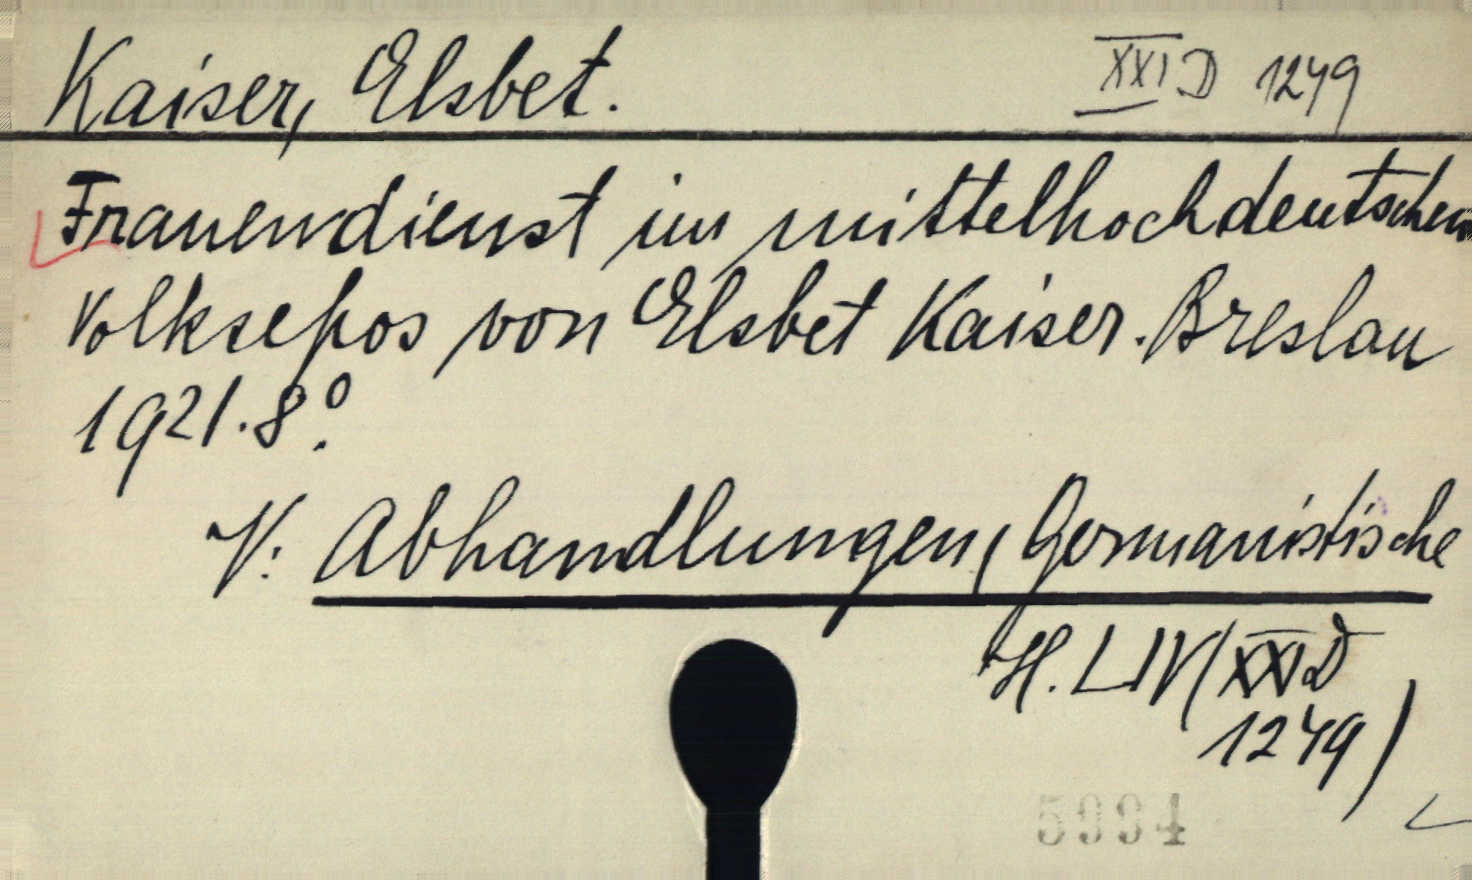 Kaiser, Elsbet. XXI D 1249
Frauendienst im mittelhochdeutschen
Volksepos von Elsbet Kaiser. Breslau
1921. 8º.
V: Abhandlungen, Germanistische
H. LIV (XXI D
1249)
5994